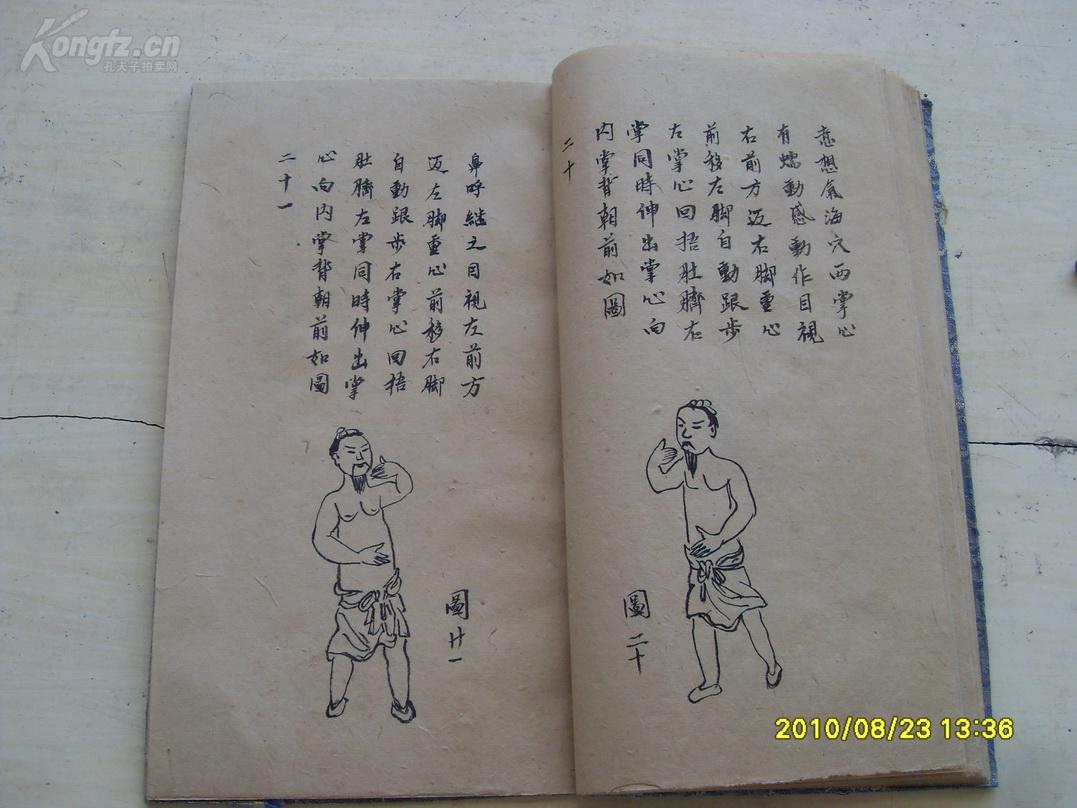 意想氣海穴両掌心
有蠕動感動作目視
右前方迈右脚重心
前移左脚自動跟步
左掌心回捂肚臍右
掌同時伸出掌心向
内掌背朝前如圖
二十
圖二十
鼻呼継之目視左前方
迈左脚重心前移右脚
自動跟步右掌心回捂
肚臍左掌同時伸出掌
心向内掌背朝前如圖
二十一
圖廿一
Kongfz.cn
孔夫子拍卖网
2010/08/23 13:36